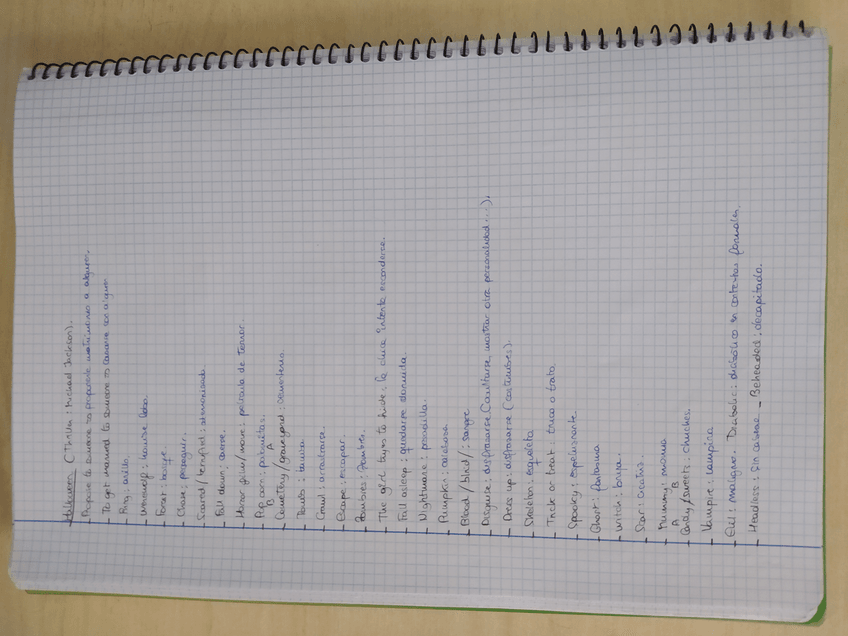 Halloween (Thriller: Michael Jackson).
Propose to someone → proponerle matrimonio a alguien.
To get married to someone → casarse con alguien
Ring: anillo.
Werewolf: hombre lobo.
Forest: bosque.
Chase: perseguir.
Scared / terrified: atemorizada.
Fall down: caerse.
Horror film/movie: película de terror.
Pop corn: palomitas.
B A
Cemetery / graveyard: cementerio.
Tomb: tumba.
Crawl: arrastrarse.
Escape: escapar.
Zombies: zombies.
The girl tries to hide: la chica intenta esconderse.
Fall asleep: quedarse dormida.
Nightmare: pesadilla.
Pumpkin: calabaza.
Blood / blud/: sangre
Disguise: disfrazarse (ocultarse, mostrar otra personalidad...).
Dress up: disfrazarse (costumbres).
Skeleton: esqueleto
Trick or treat: truco o trato
Spooky: espeluznante
Ghost: fantasma
Witch: bruja.
Scar: cicatriz
Mummy: momia
A B
Candy/sweets: chuches.
Vampire: vampiro.
Evil: maligno. Diabolic: diabólico en contextos formales.
Headless: sin cabeza - Beheaded: decapitado.